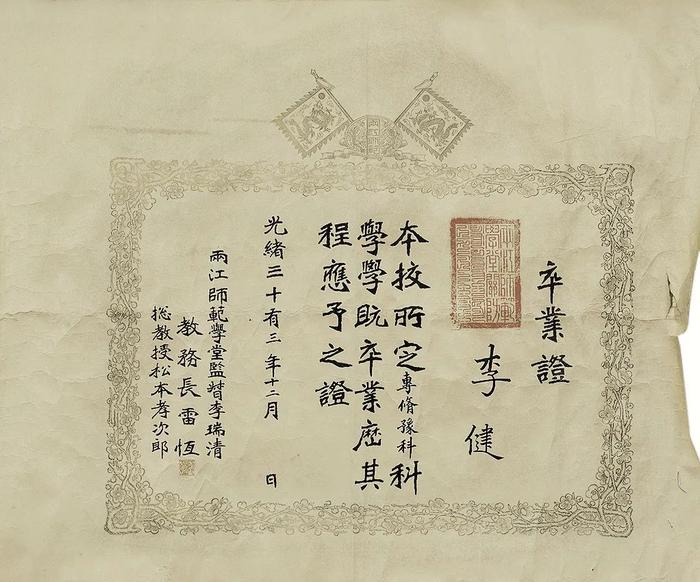 卒業證
李健
本校所定專脩豫科科
學學既卒業歷其
程應予之證
光緒三十有三年十二月 日
兩江師範學堂監督李瑞清
教務長雷恆
總教授松本孝次郎